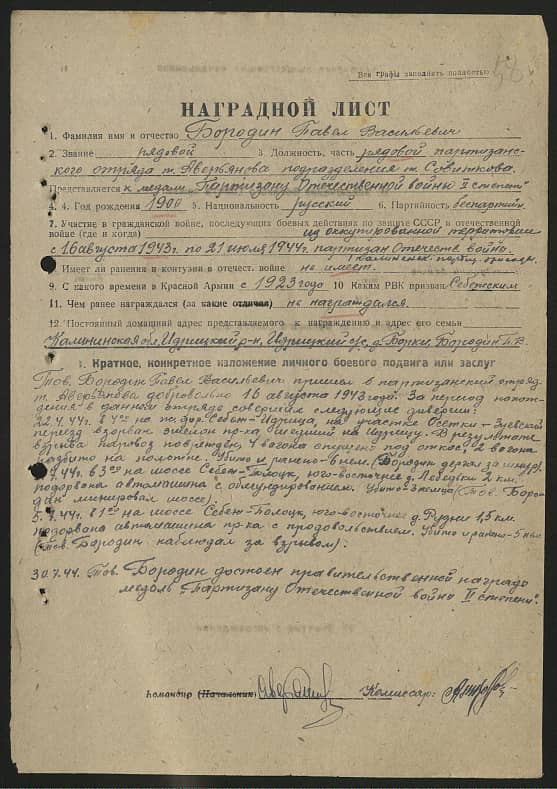 Все графы заполнять полностью
НАГРАДНОЙ ЛИСТ
1. Фамилия имя и отчество Бородин Павел Васильевич
2. Звание рядовой 3. Должность, часть рядовой партизанс-
кого отряда т. Авербянова подразделения т. Совиткова.
Представляется к медали „Партизану Отечественной войны II степени"
4. Год рождения 1900 5. Национальность русский 6. Партийность беспартийн.
7. Участие в гражданской войне, последующих боевых действиях по защите СССР и отечественной
войне (где и когда) на оккупированной территории
с 16 августа 1943 г. по 21 июля 1944 г. партизан Отечеств. войны.
Калининск. партиз. бригады.
8. Имеет ли ранения и контузии в отечест. войне не имеет.
9. С какого времени в Красной Армии с 1923 года 10 Каким РВК призван Себежским
11. Чем ранее награждался (за какие отличая) не награждался.
12. Постоянный домашний адрес представляемого к награждению и адрес его семьи
Калининская обл. Идрицкий р-н, Идрицкий с/с, д. Борки, Бородин П.В.
1. Краткое, конкретное изложение личного боевого подвига или заслуг
Тов. Бородин Павел Васильевич пришел в партизанский отряд
т. Авербянова добровольно 16 августа 1943 года. За период нахож-
дения в данном отряде совершил следующие диверсии:
22.4.44 г. в на ж. дор. Себеж-Идрица, на участке Осетки-Зуевский
переезд взорван эшелон пр-ка шедший на Идрицу. В результате
взрыва паровоз поврежден, 4 вагона спущено под откос, 2 вагона
разбито на полотне. Убито и ранено 8 нем. (Бородин держал за шнур)
7.44 г. в 3 на шоссе Себеж-Полоцк, юго-восточнее д. Лебедевы 2 км.
подорвана автомашина с обмундированием. Убито 3 немца (Тов. Боро-
дин минировал шоссе).
5.7.44 г. в на шоссе Себеж-Полоцк, юго-восточнее д. Рудни 1,5 км.
подорвана автомашина пр-ка с продовольствием. Убито и ранено 5 нем.
(тов. Бородин наблюдал за взрывом).
30.7.44. Тов. Бородин достоен правительственной награды
медаль „Партизану Отечественной войны II степени".
Командир (Начальник) Комиссар: